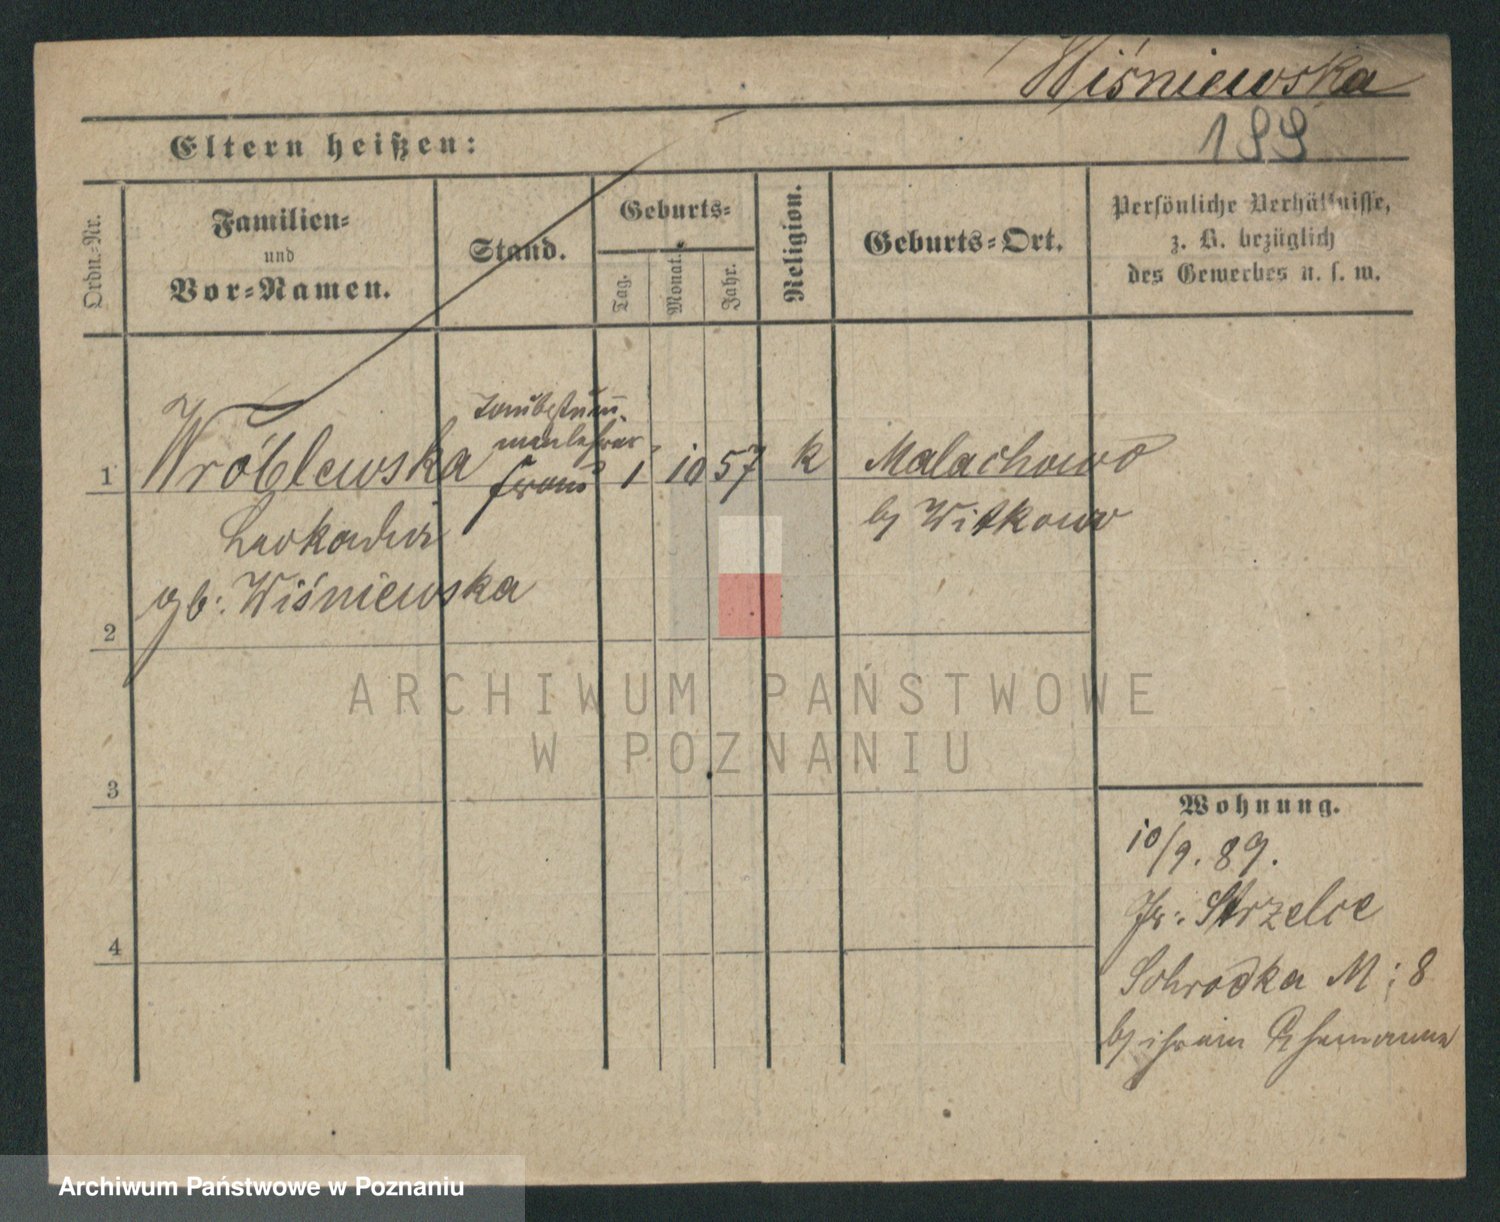 Wiśniewska
199
Eltern heißen:
Ordn.-Nr.
Familien-
und
Vor-Namen.
Stand.
Geburts-
Tag.
Monat.
Jahr.
Religion.
Geburts-Ort.
Persönliche Verhältnisse,
z. B. bezüglich
des Gewerbes u. s. w.
Taubstum̅
menlehrer
frau
1 Wróblewska 1 10 57 k Malachowo
Leokadia by Witkowo
gb: Wiśniewska
2
ARCHIWUM PAŃSTWOWE
W POZNANIU
3
Wohnung.
10/9. 89.
Fr: Strzelce
4
Schrodka M: 8
by ihrem Ehemanne
Archiwum Państwowe w Poznaniu